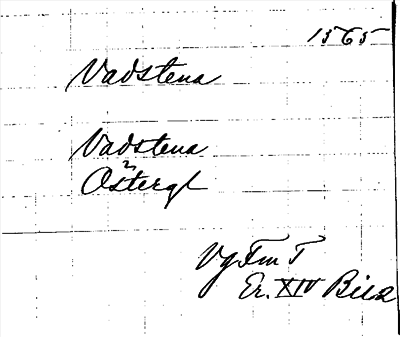 1565
Vadstena
Vadstena
Östergl
Vg Fm T
Er. XIV Bild